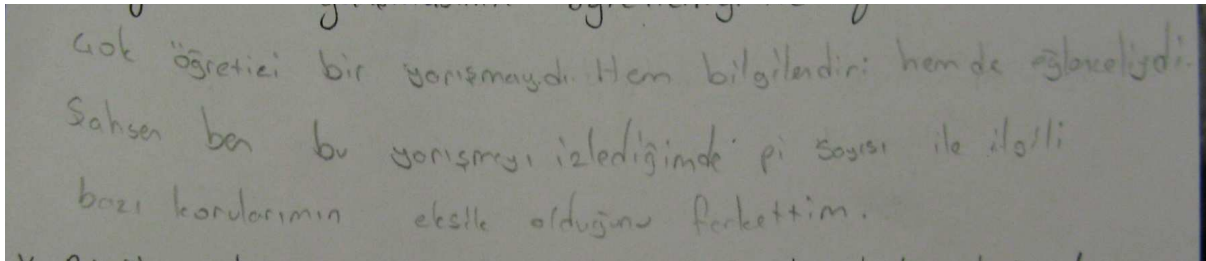 Çok öğretici bir yarışmaydı. Hem bilgilendirici hem de eğlenceliydi.
Şahsen ben bu yarışmayı izlediğimde pi sayısı ile ilgili
bazı konularımın eksik olduğunu farkettim.